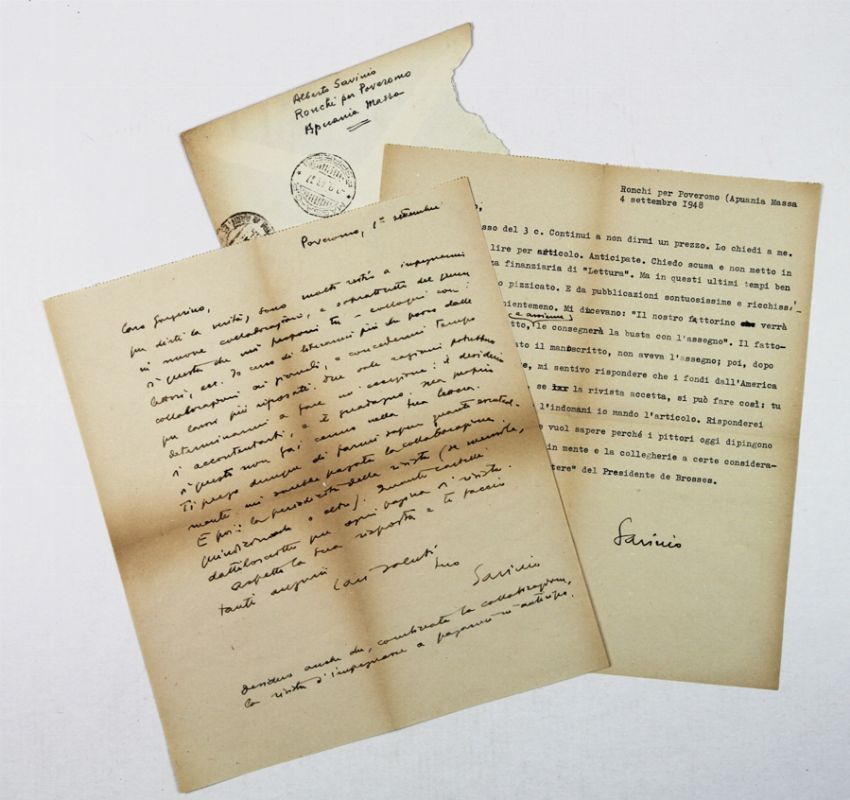 Alberto Savinio
Ronchi per Poveromo
Apuania Massa
Ronchi per Poveromo (Apuania Massa
4 settembre 1948
sso del 3 c. Continui a non dirmi un prezzo. Lo chiedi a me.
lire per articolo. Anticipate. Chiedo scusa e non metto in
za finanziaria di "Lettura". Ma in questi ultimi tempi ben
o pizzicato. E da pubblicazioni sontuosissime e ricchiss
nientemeno. Mi dicevano: "Il nostro fattorino verrà
e assieme
tto, le consegnerà la busta con l'assegno". Il fatto-
ato il manoscritto, non aveva l'assegno; poi, dopo
e, mi sentivo rispondere che i fondi dall'America
, se la rivista accetta, si può fare così: tu
l'indomani io mando l'articolo. Risponderei
e vuol sapere perché i pittori oggi dipingono
in mente e la collegherie a certe considera-
tere" del Presidente de Brosses.
Savinio
Poveromo, 1° settembre
Caro
per dirti la verità, sono molto restio a impegnarmi
in nuove collaborazioni, e soprattutto del genere
di questa che mi proponi tu - colloqui con i
lettori, ecc. Io cerco di liberarmi più che posso dalle
collaborazioni ai giornali, e concedermi tempo
per lavori più riposati. Due sole ragioni potrebbero
determinarmi a fare un'eccezione: il desiderio
di accontentarti, e il guadagno. Ma proprio
di questo non fai cenno nella tua lettera.
Ti prego dunque di farmi sapere quanto
mi sarebbe pagata la collaborazione.
E poi: la periodicità della rivista (se mensile,
quindicinale o altro). Quante cartelle
dattiloscritte per ogni pagina di rivista.
Aspetto la tua risposta e ti faccio
tanti auguri
Cari saluti
tuo
Savinio
Desidero anche che, combinata la collaborazione,
la rivista s'impegnasse a pagarmi in anticipo.